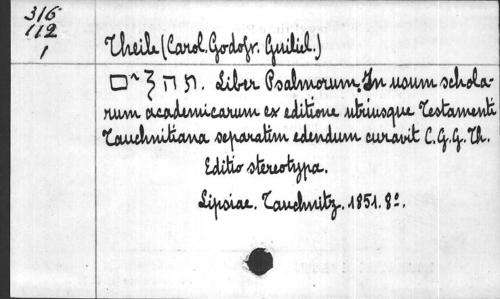 316
112
1
Theile (Carol. Godofr. Guiliel.)
תהלים. Liber Psalmorum. In usum schola-
rum academicarum ex editione utriusque Testamenti
Tauchnitiana separatim edendum curavit C. G. G. Th.
Editio stereotypa.
Lipsiae. Tauchnitz. 1851. 8º.